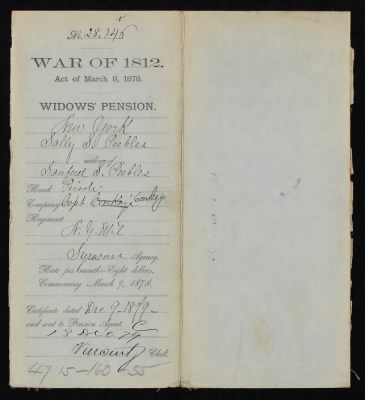 No 28,145
WAR OF 1812.
Act of March 9, 1878.
WIDOWS' PENSION.
New York
Sally S. Peebles
widow of
Sanford S. Peebles
Rank Private
Company Capt
Regiment
N.Y. Mil
Syracuse Agency.
Rate per month—Eight dollars.
Commencing March 9, 1878.
Certificate dated Dec 9- 1879-
and sent to Pension Agent.
13 Dec 79
Clerk.
4715-160-55